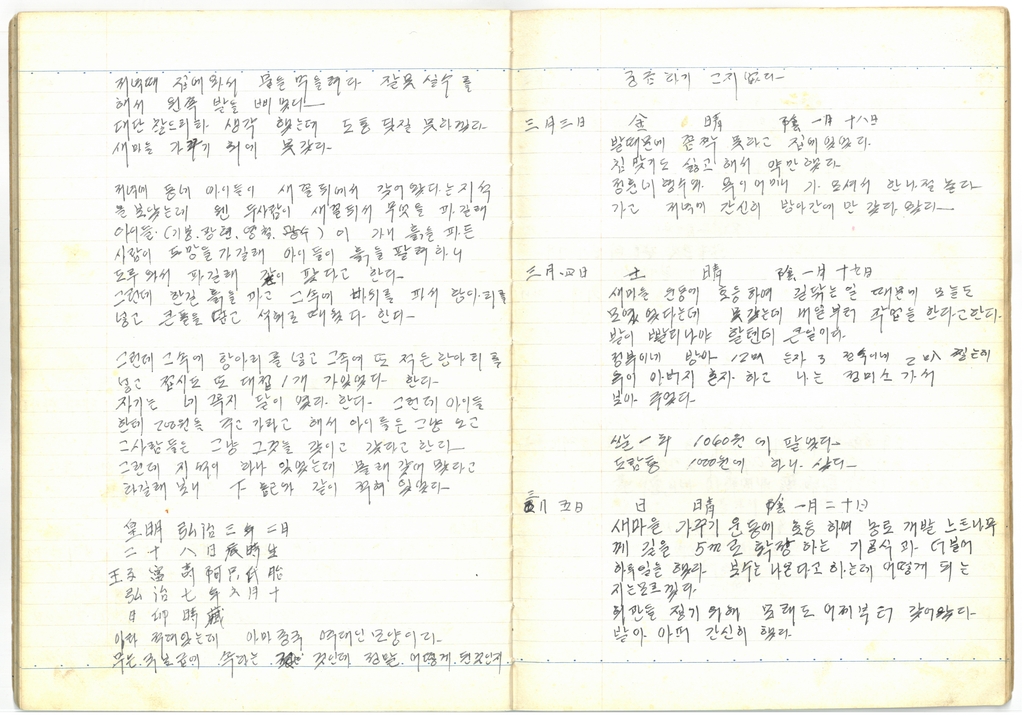 저녁때 집에 와서 물을 먹을려다 잘못 실수를
해서 왼쪽 발을 삐었다
대단찮으리라 생각 했는데 도통 딪질 못하겠다
새마을 가꾸기 하여 못갔다.
저녁에 동네 아이들이 새골뒤에서 갖어왔다는 지석
을 보았는데 웬 두사람이 새골뒤서 무엇을 파길래
아이들 (기봉, 장현, 영철, 광수) 이 가니 흙을 파든
사람이 도망을 가길래 아이들이 흙을 팔려하니
도루 와서 파길래 같이 팠다고 한다
그런데 한길 흙을 까고 그속에 바위를 파서 항아리를
넣고 큰돌을 덮고 석회로 때웠다 한다.
그런데 그속에 항아리를 넣고 그속에 또 적은 항아리를
넣고 접시도 또 대접 1개 가있었다 한다.
자기는 네 꼭지 달이 었다 한다. 그런데 아이들
한테 200원을 주고 가라고 해서 아이들은 그냥 오고
그사람들은 그냥 그것을 갖이고 갔다고 한다
그런데 지석이 하나 있었는데 몰래 갖어 왔다고
하길래 보니 下記와 같이 적혀 있었다
皇明 弘治 三年 二月
二十八日辰時生
王子 富壽阿只氏胎
弘治 七年 六月 十
日 卯時藏
이라 적혀있는데 아마 중국 역대인 모양이다.
것인데 정말 어떻게 된것인지
궁금하기 그지없다
三月三日 金 晴 陰 一月十八日
발때문에 꼼짝 못하고 집에 있었다.
침 맞기도 싫고 해서 약만 했다
가고 저녁에 간신히 방아간에만 갔다 왔다
三月四日 土 晴 陰 一月十九日
새마을 운동에 호응하여 길닦는일 때문에 오늘도
모였었다는데 못갔는데 내일부터 작업을 한다고한다.
발이 빨리나야 할텐데 큰일이다.
아버지 혼자 하고 나는 정미소 가서
빻아 주었다.
쌀 一叺 1060원 에 팔었다
도람통 1000원에 하나 샀다
三月五日 日 晴 陰 一月二十日
새마을 가꾸기 운동에 호응 하며 농로 개발 느트나무
께 길을 5m로 확장 하는 기공식과 더불어
하루일을 했다 보수는 나온다고 하는데 어떻게 되는
지는모르겠다.
회관을 짓기 위해 모래도 어제부터 갖어왔다
발이 아퍼 간신히 했다.